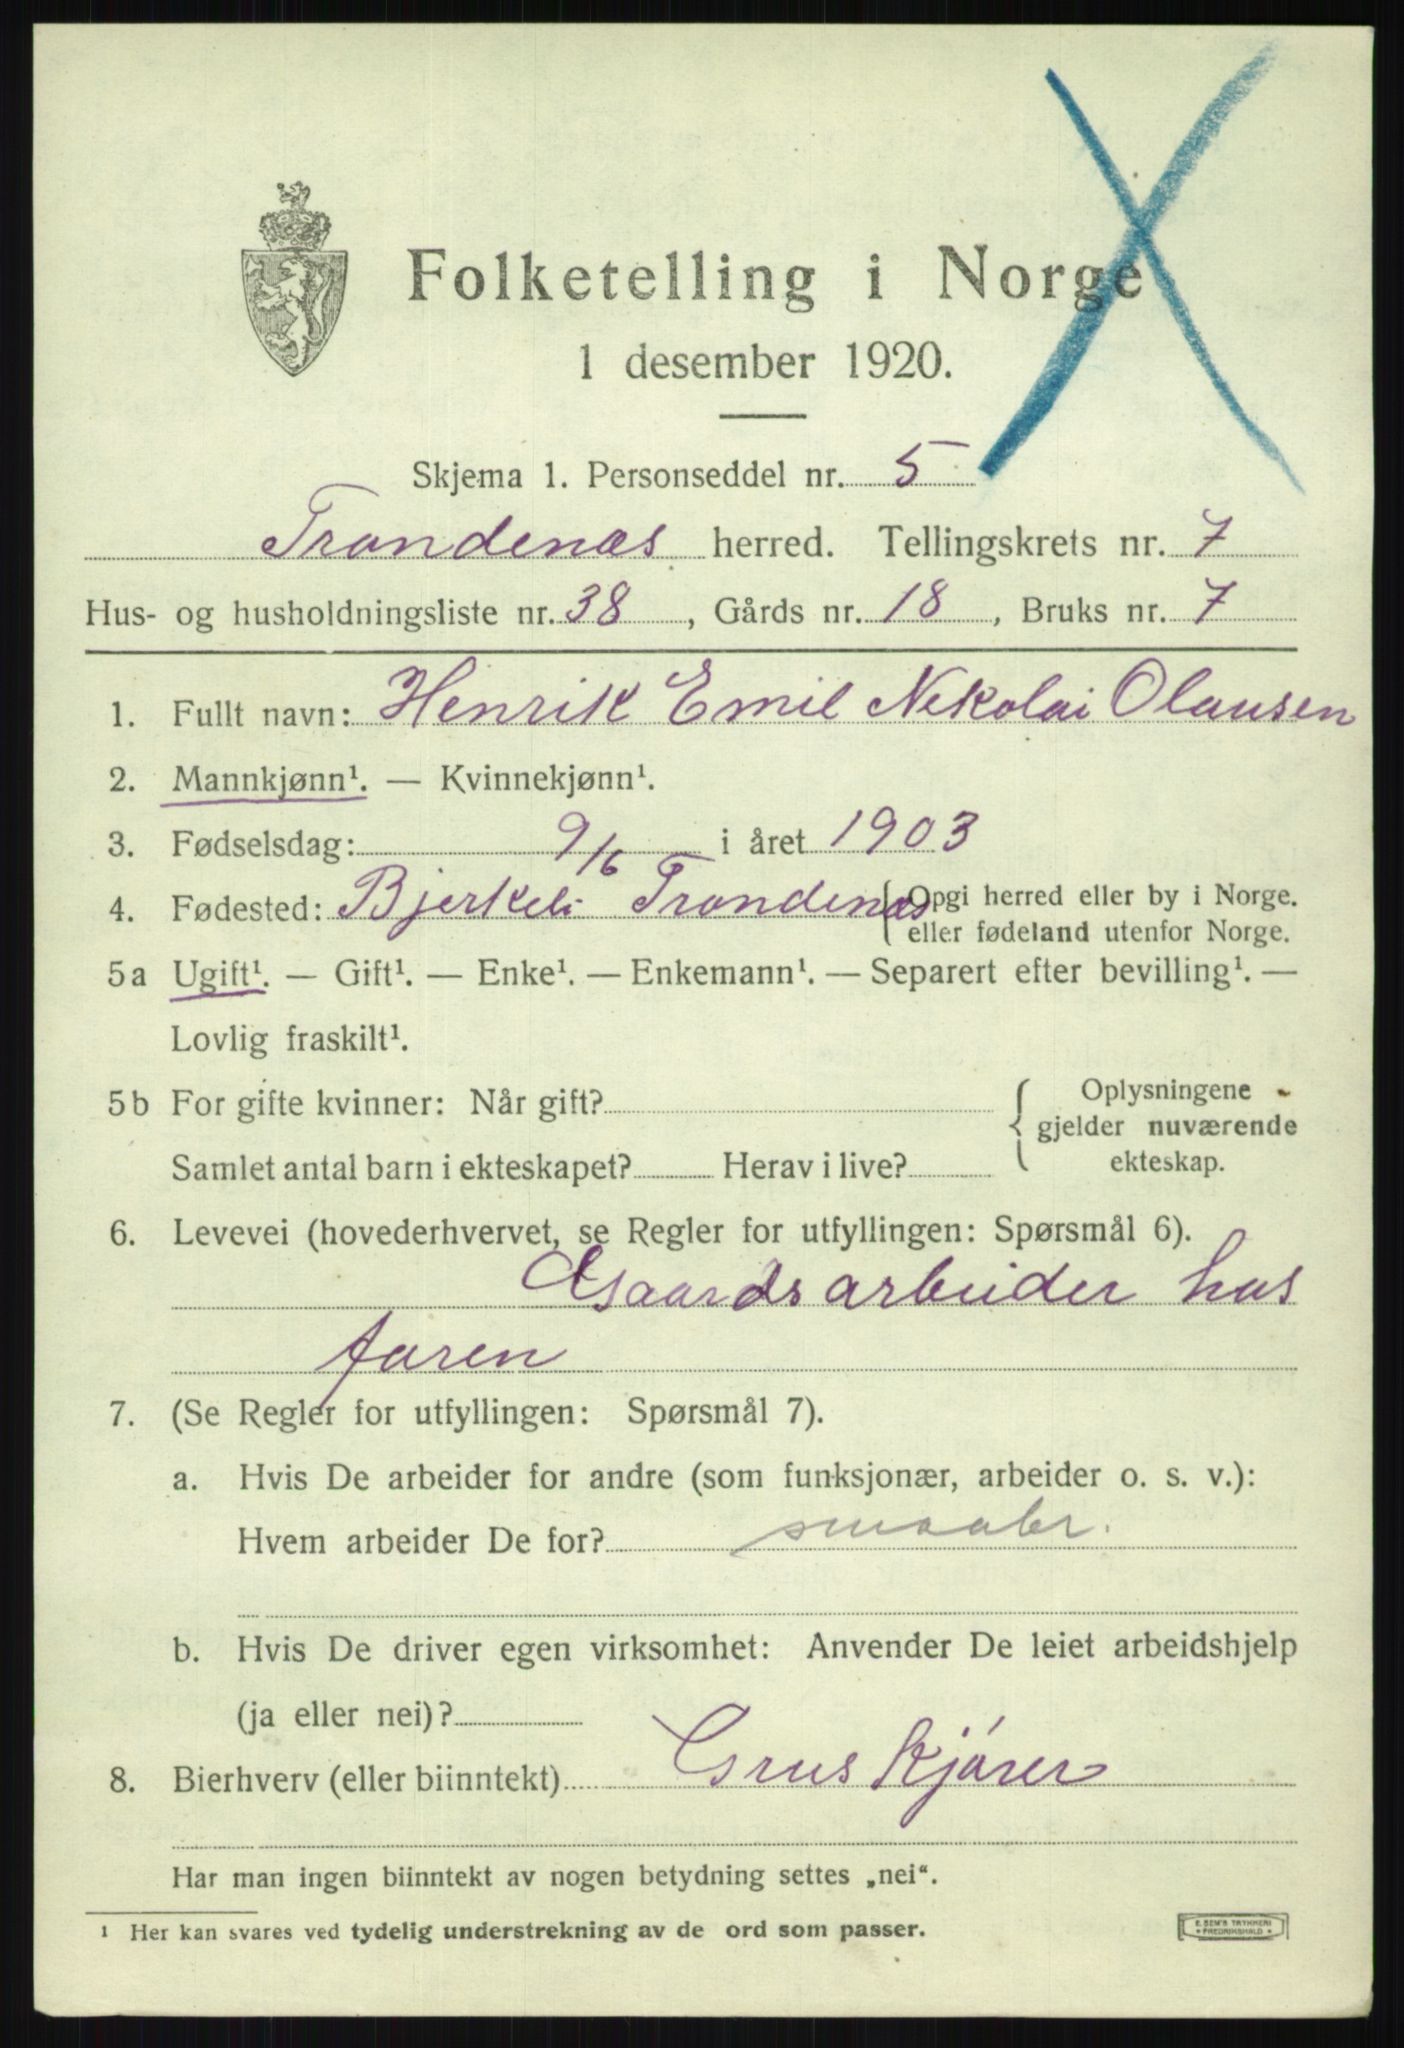 Folketelling i Norge
1 desember 1920.
Skjema 1. Personseddel nr. 5
Trondenæs herred. Tellingskrets nr. 7
Hus- og husholdningsliste nr. 38, Gårds nr. 18, Bruks nr. 7
1. Fullt navn: Henrik Emil Nikolai Olausen
2. Mannkjønn¹. — Kvinnekjønn¹.
3. Fødselsdag: 9/6 i året 1903
4. Fødested: Bjerkeli Trondenæs {Opgi herred eller by i Norge.
eller fødeland utenfor Norge.
5a Ugift¹. — Gift¹. — Enke¹. — Enkemann¹. — Separert efter bevilling¹. —
Lovlig fraskilt¹.
5b For gifte kvinner: Når gift? { Oplysningene
gjelder nuværende
Samlet antal barn i ekteskapet? Herav i live? ekteskap.
6. Levevei (hovederhvervet, se Regler for utfyllingen: Spørsmål 6).
Gaardsarbeider hos
faren
7. (Se Regler for utfyllingen: Spørsmål 7).
a. Hvis De arbeider for andre (som funksjonær, arbeider o. s. v.):
Hvem arbeider De for? smaabr.
b. Hvis De driver egen virksomhet: Anvender De leiet arbeidshjelp
(ja eller nei)?
8. Bierhverv (eller biinntekt) Grus kjörer
Har man ingen biinntekt av nogen betydning settes „nei“.
¹ Her kan svares ved tydelig understrekning av de ord som passer.
E. SEM'S TRYKKERI
FREDRIKSHALD